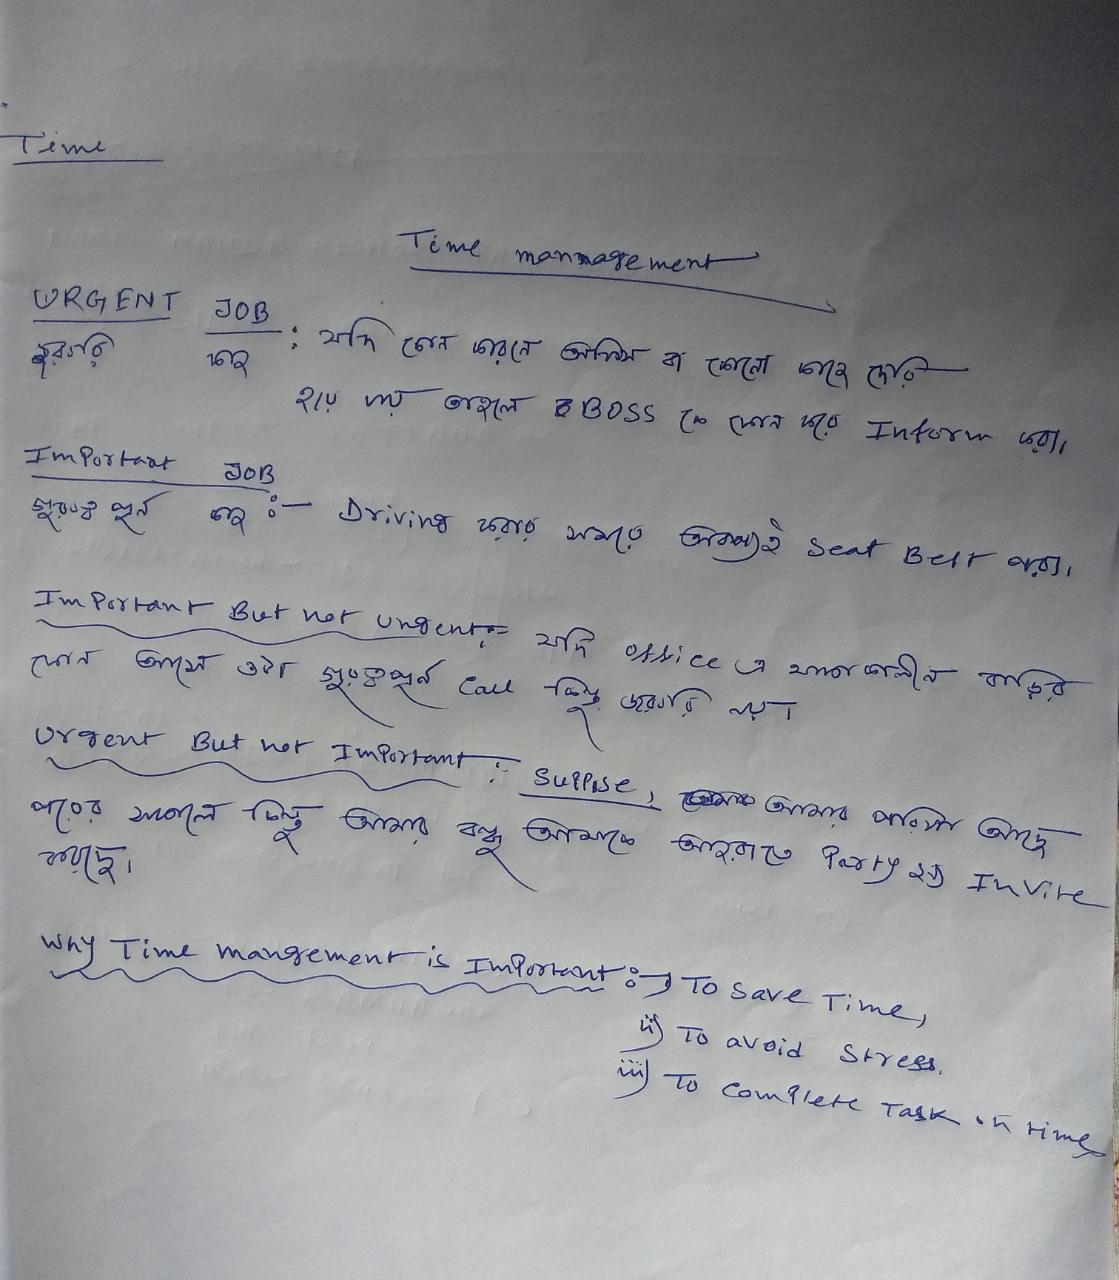 Time
Time mannagement
URGENT JOB
জুরারি কাজ : যদি কোন কারনে অফিস বা কোনো কাজে দেরি
হয়ে যায় তাহলে BOSS কে ফোন করে Inform করা।
Important JOB
গুরুত্বপূর্ন কাজ :- Driving করার সময়ে অবশ্যই Seat Belt পরা।
Important But not urgent:- যদি office এ থাকাকালীন বাড়ির
ফোন আসে ওটা গুরুত্বপূর্ন Call কিন্তু জরুরি নয়।
Urgent But not Important :- Suppise, আমার পরিক্ষা আছে
পরের সকালে কিন্তু আমার বন্ধু আমাকে আজরাতে Party এ Invite
করেছে।
Why Time mangement is Important :- i) To Save Time,
ii) To avoid Stress.
iii) To Complete Task on time